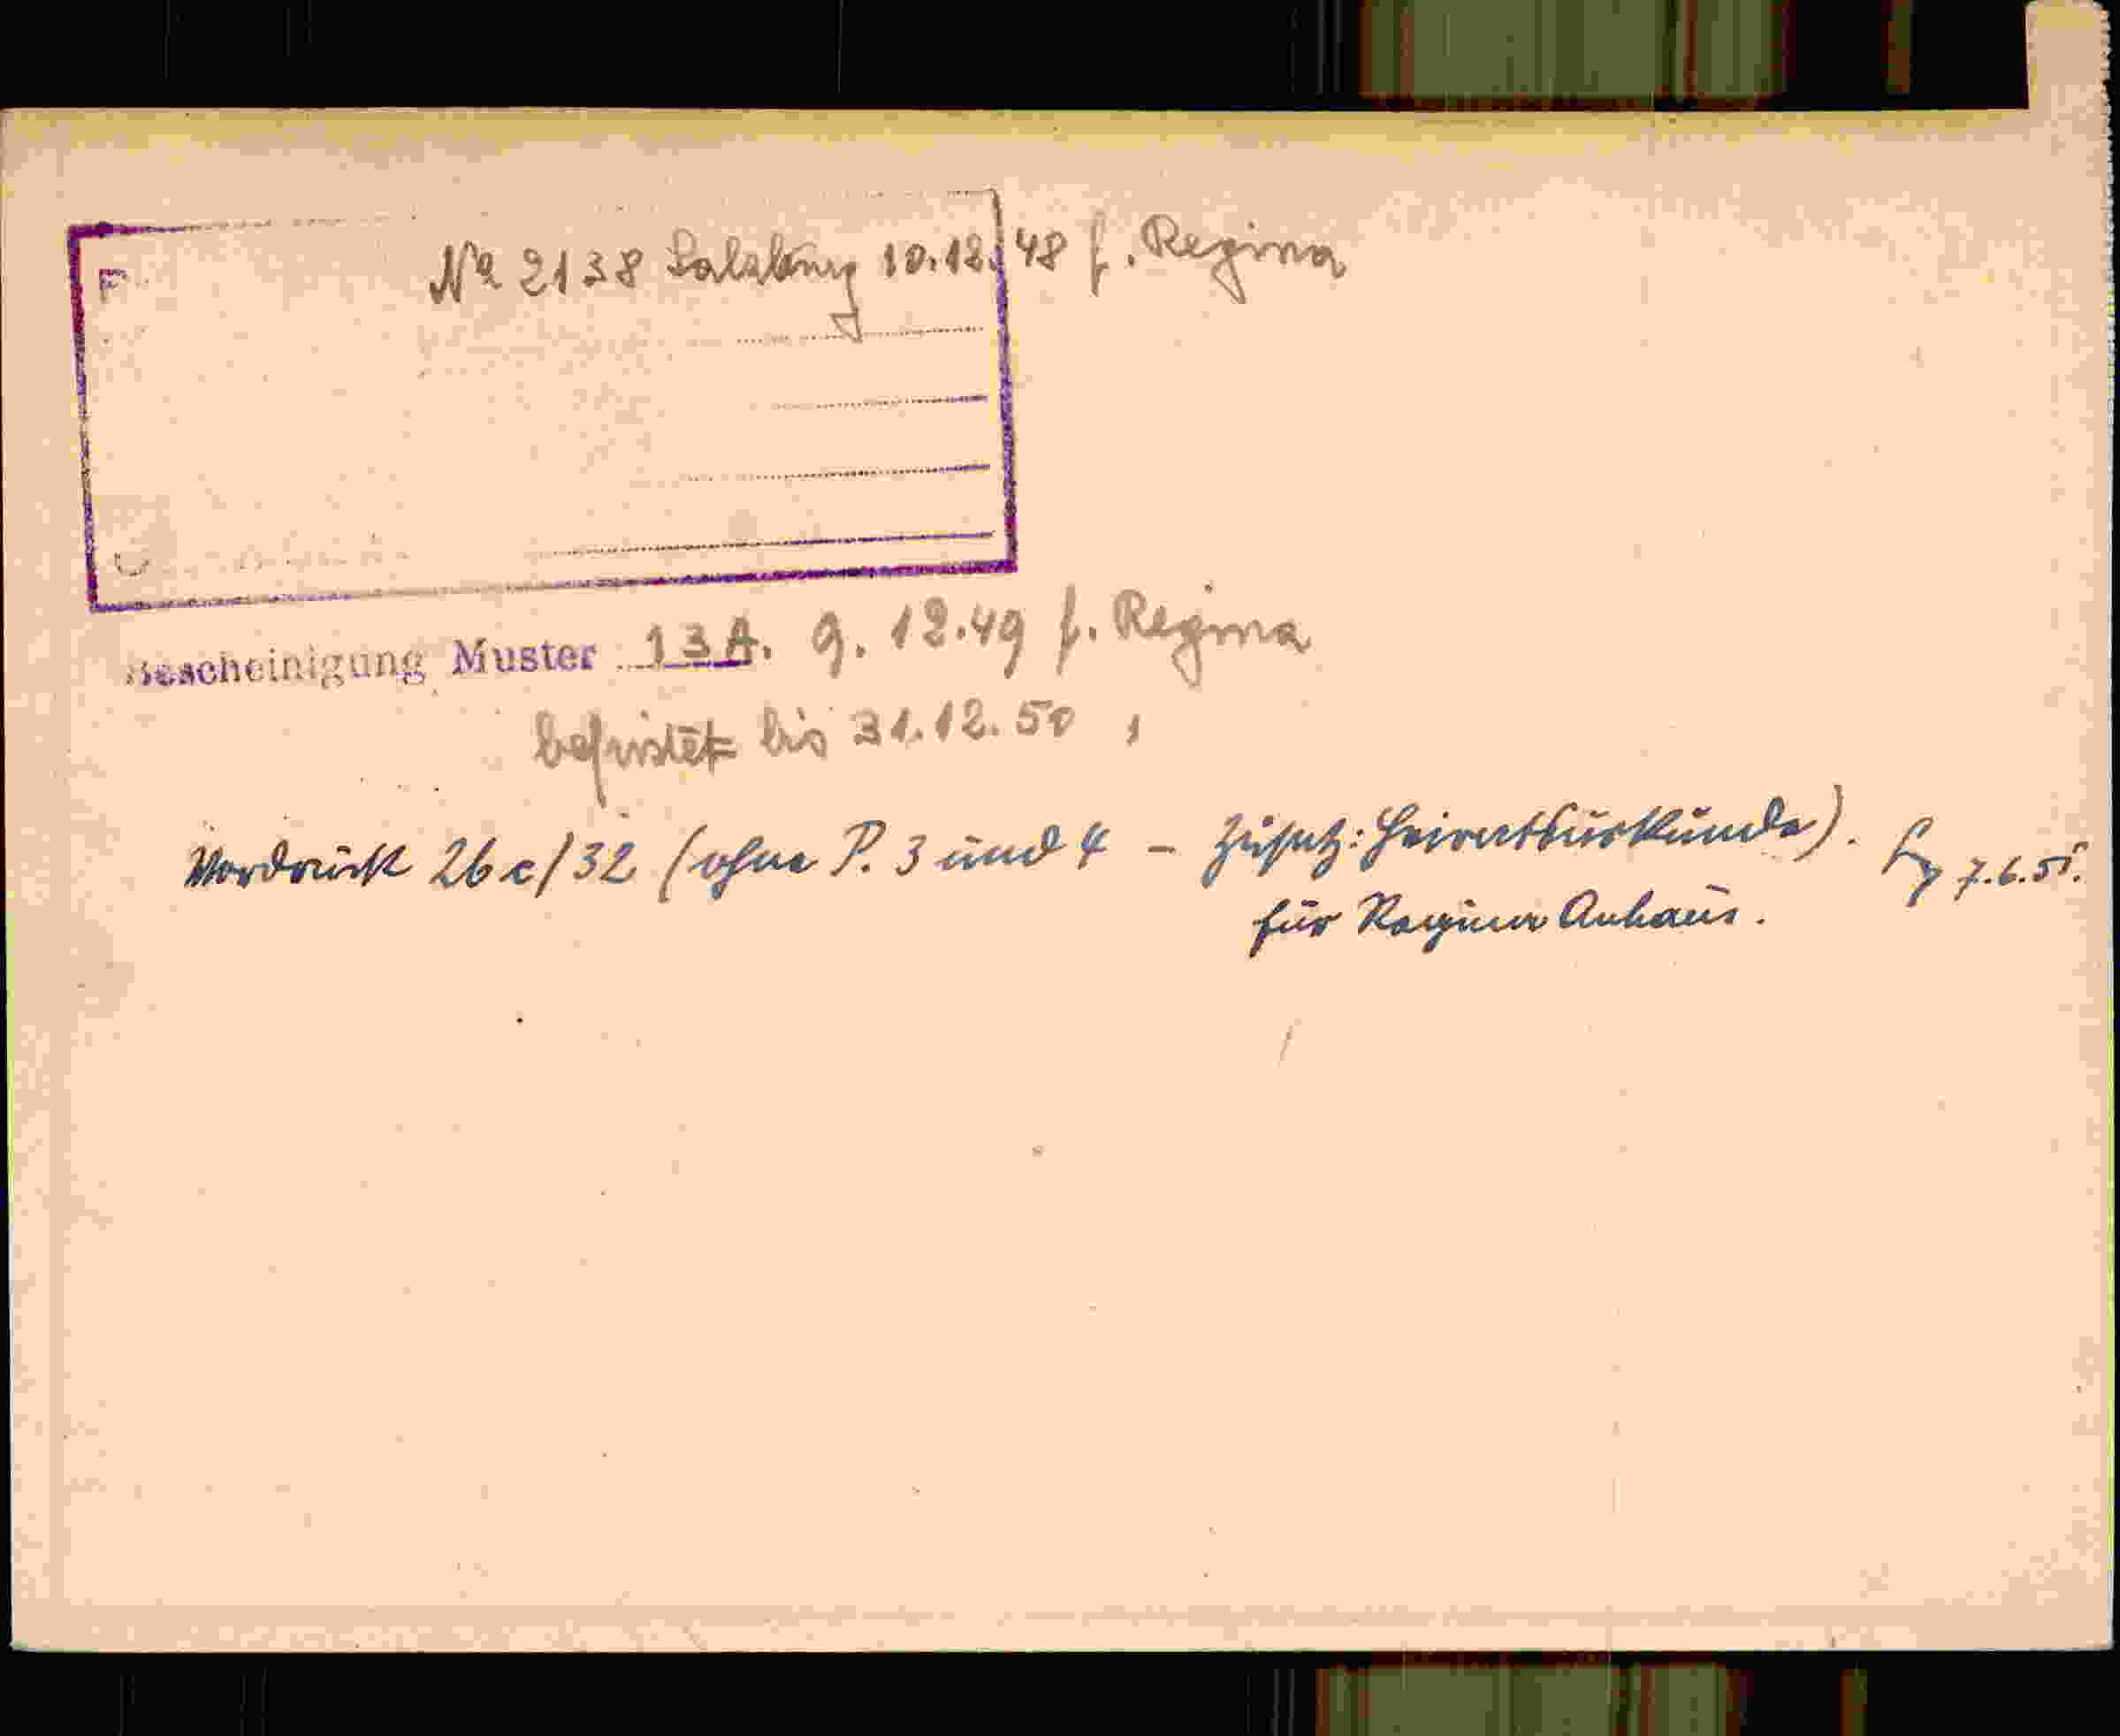 F
№ 2138 Salzburg 10.12.48 f. Regina
Bescheinigung Muster 13A. 9.12.49 f. Regina
befristet bis 31.12.50
Vordruck 26c/32 (ohne P. 3 und 4 - Zusatz: Heiratsurkunde). 7.6.51.
für Regina Anhaus.